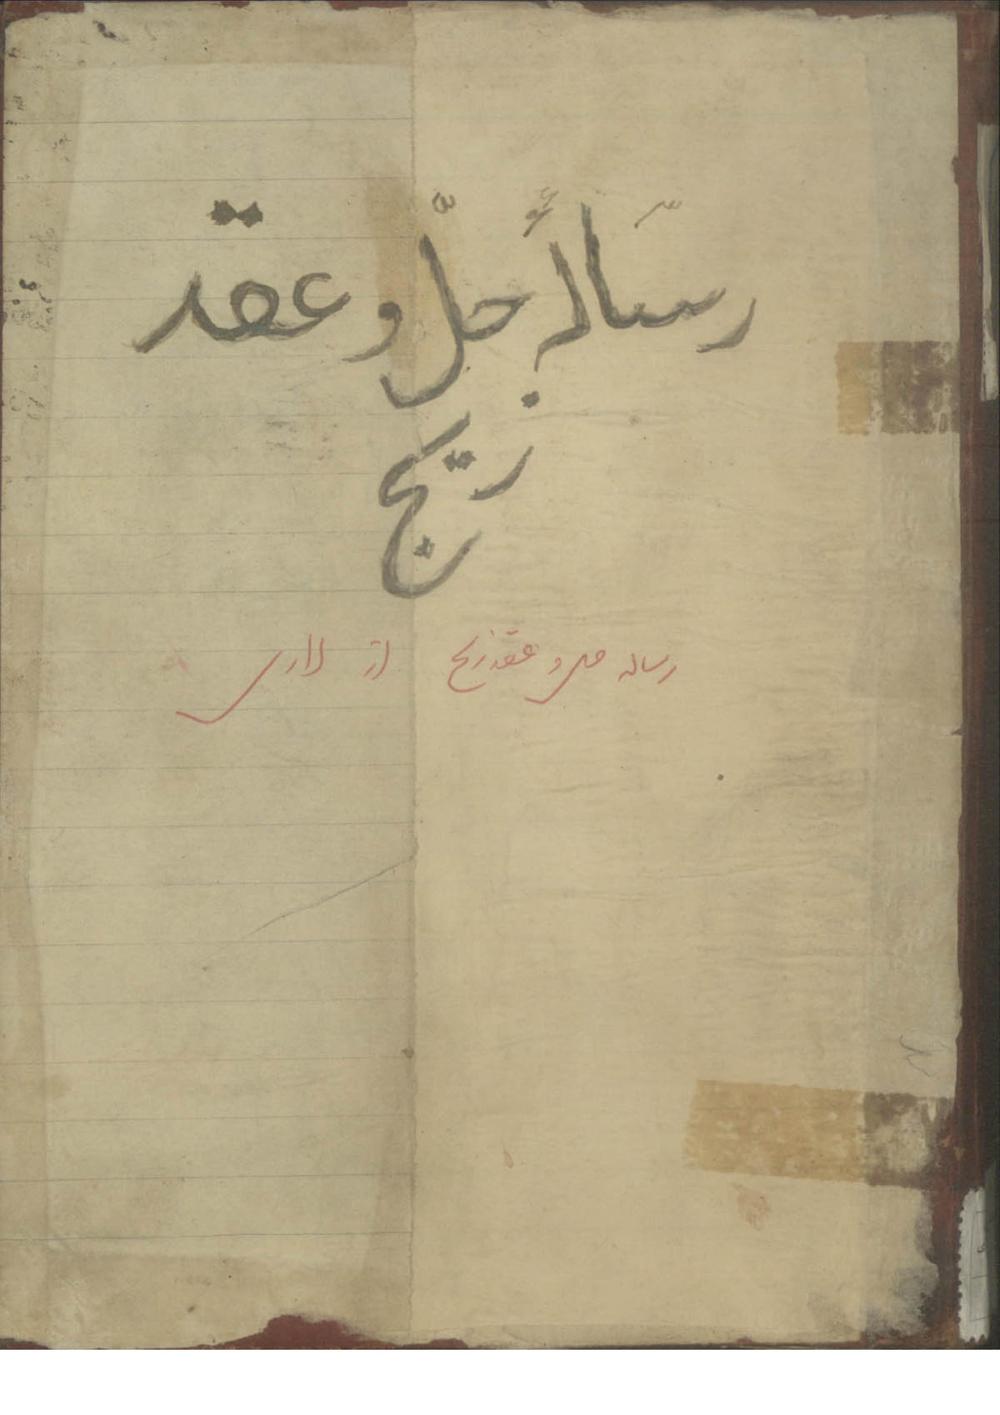 رسالهٔ حلّ و عقد
زیج
رساله حل و عقد زیج از لاری